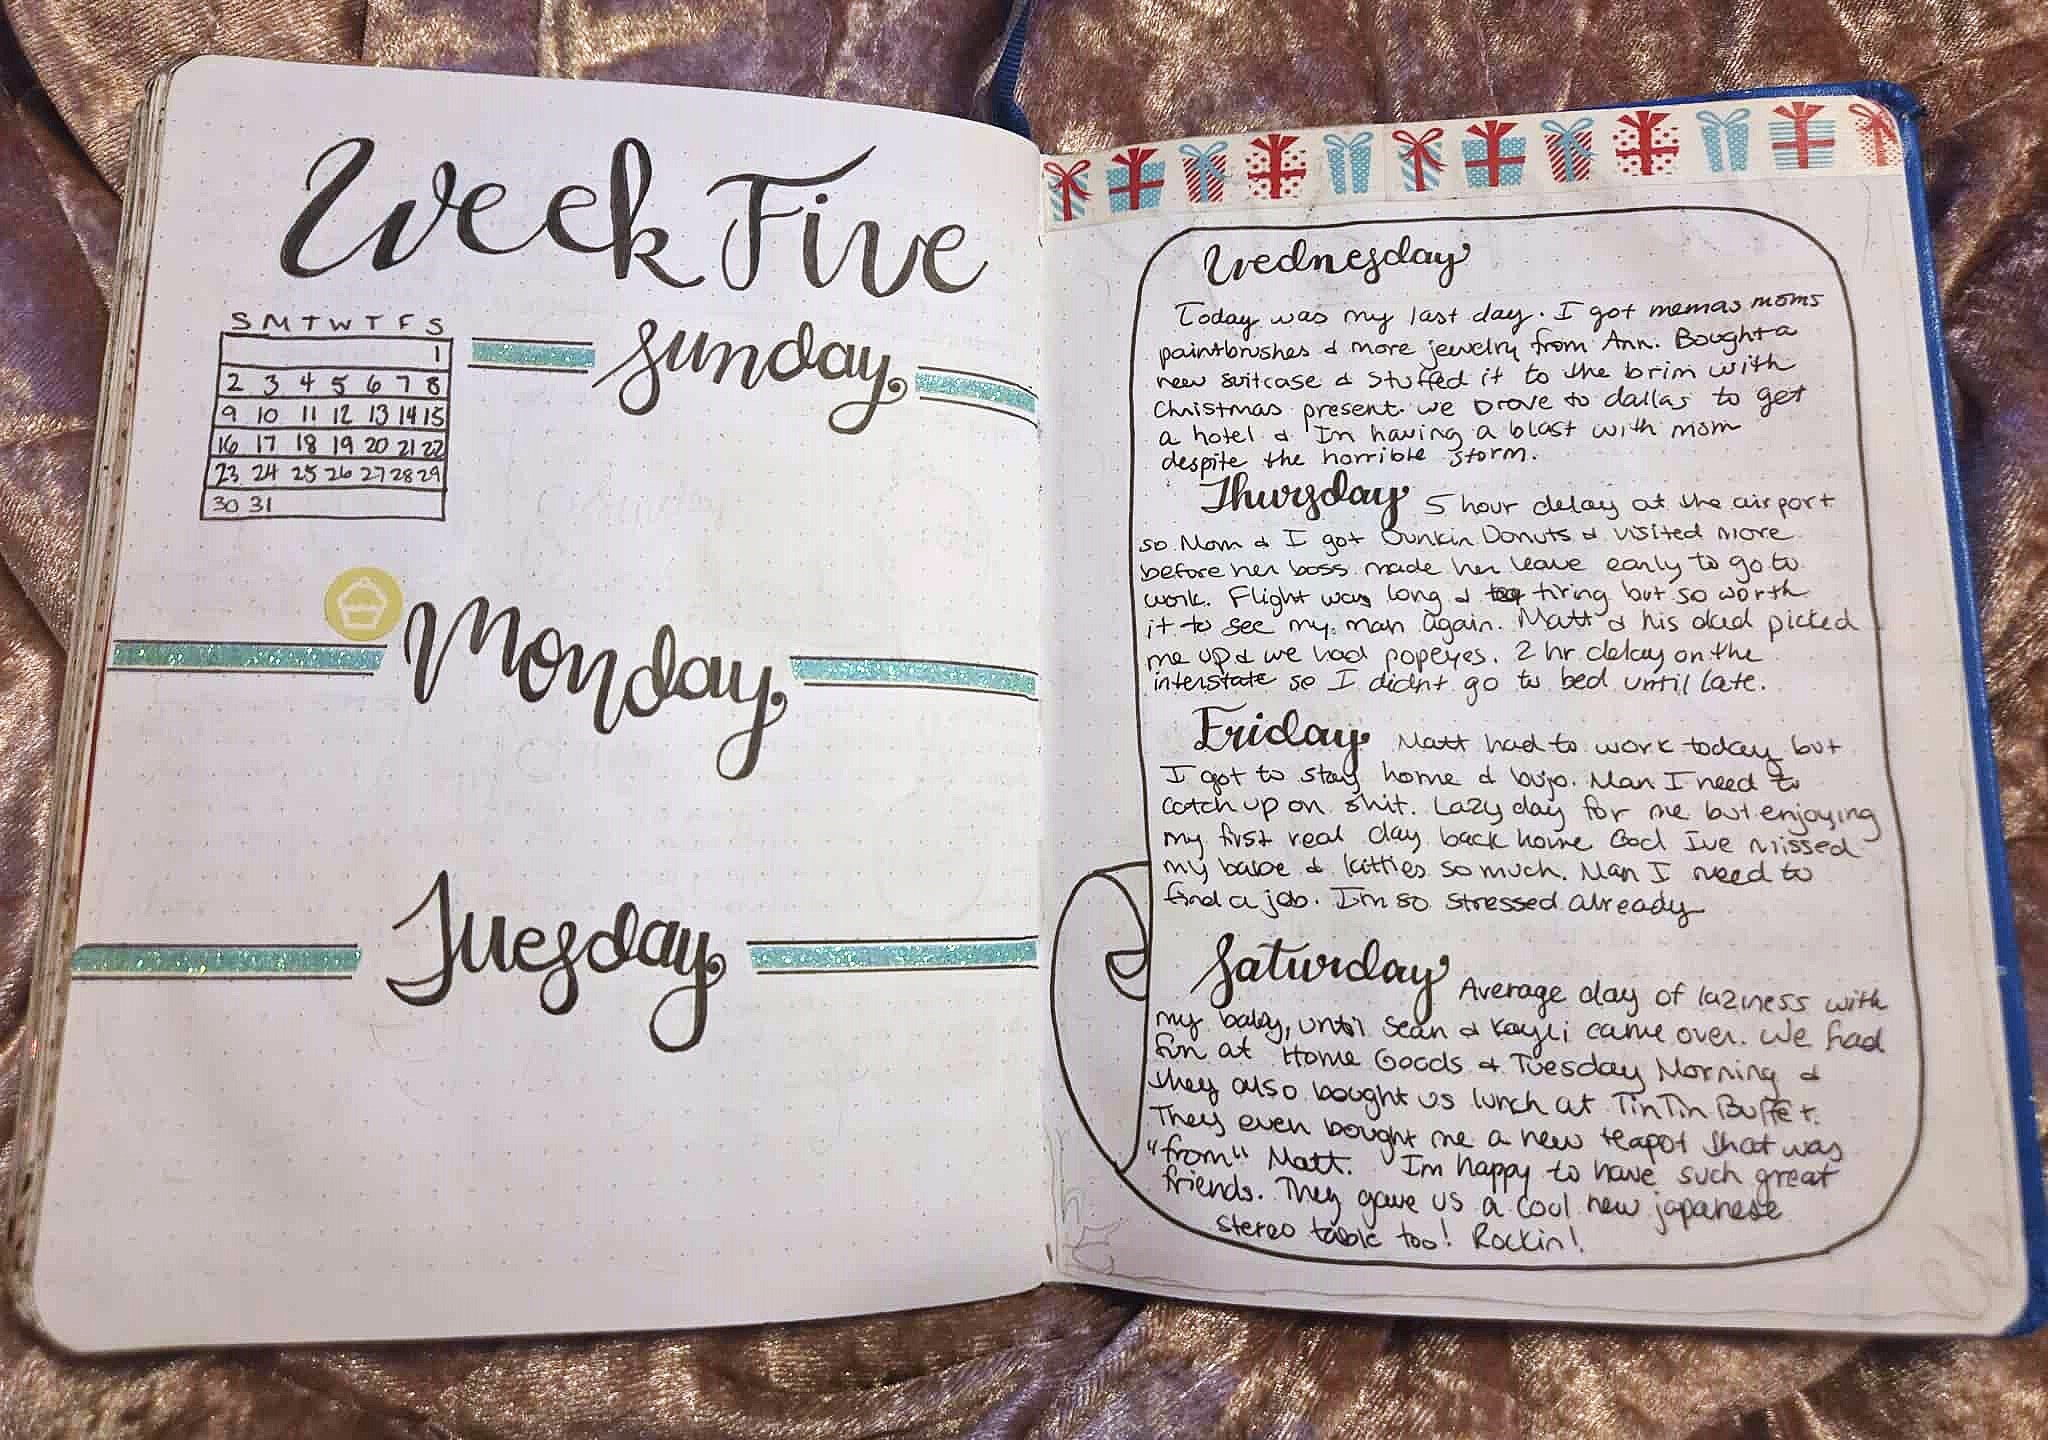 Week Five
S M T W T F S
1
2 3 4 5 6 7 8
9 10 11 12 13 14 15
16 17 18 19 20 21 22
23 24 25 26 27 28 29
30 31
Sunday
Monday
Tuesday
Wednesday
Today was my last day. I got memas moms
paintbrushes & more jewelry from Ann. Bought a
new suitcase & stuffed it to the brim with
Christmas present. we drove to dallas to get
a hotel & Im having a blast with mom
despite the horrible storm.
Thursday 5 hour delay at the airport
so Mom & I got Dunkin Donuts & visited more
before her boss made her leave early to go to
work. Flight was long & tiring but so worth
it to see my man again. Matt & his dad picked
me up & we had popeyes. 2 hr delay on the
interstate so I didnt go to bed until late.
Friday Matt had to work today but
I got to stay home & bujo. Man I need to
catch up on shit. Lazy day for me but enjoying
my first real day back home God Ive missed
my babe & kitties so much. Man I need to
find a job. I'm so stressed already
Saturday Average day of laziness with
my baby, until Sean & Kayli came over. We had
fun at Home Goods & Tuesday Morning &
they also bought us lunch at TinTin Buffet.
They even bought me a new teapot that was
"from" Matt. Im happy to have such great
friends. They gave us a cool new japanese
stereo table too! Rockin!